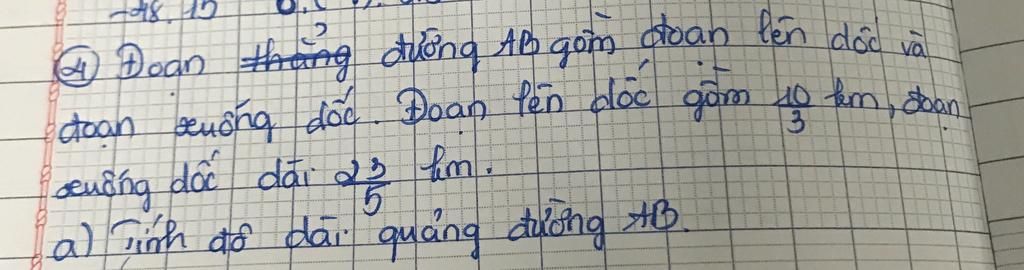 -28.15
④ Đoạn đường AB gồm đoạn lên dốc và
đoạn xuống dốc. Đoạn lên dốc gồm 10/3 km, đoạn
xuống dốc dài 23/5 km.
a) Tính độ dài quảng đường AB.